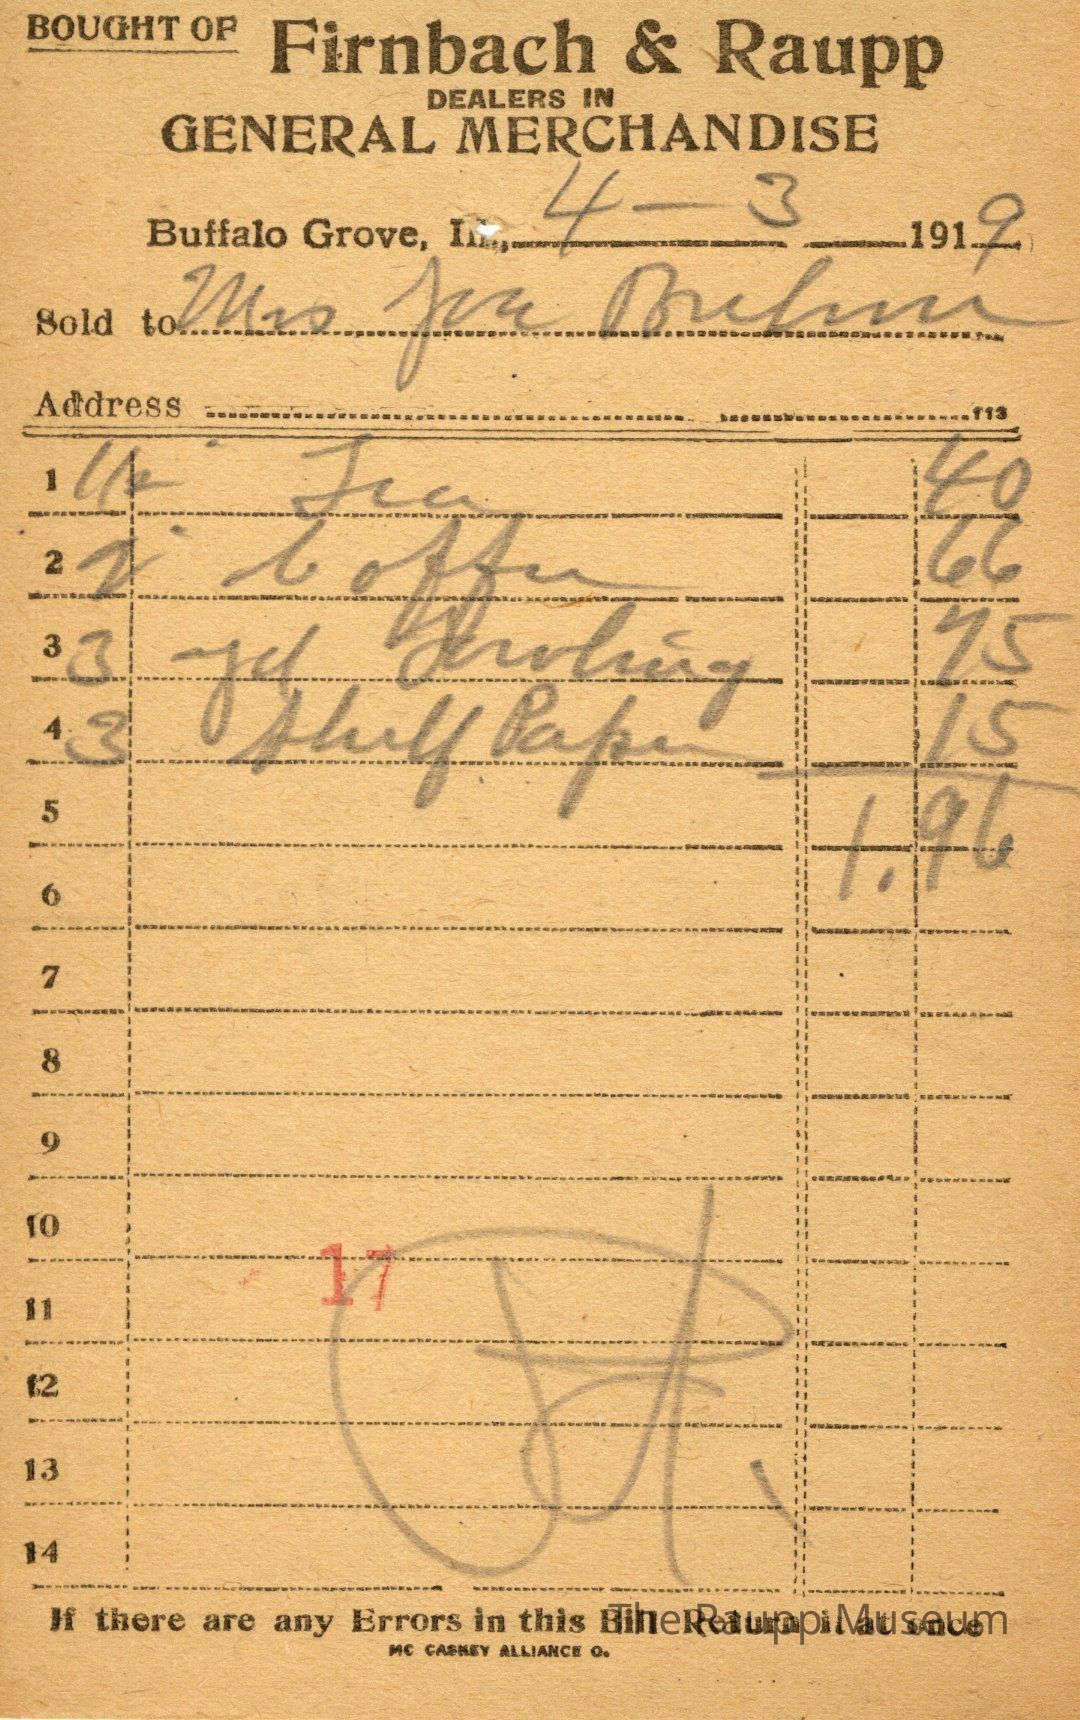 BOUGHT OF Firnbach & Raupp
DEALERS IN
GENERAL MERCHANDISE
Buffalo Grove, Ill., 4-3 1919
Sold to Mrs Joe
Address 113
1 Tea 40
2 2 Coffee 66
3 3 yd 75
4 3 Shelf Paper 15
5 1.96
6
7
8
9
10
17
11
12
13
14
If there are any Errors in this Bill Return it at once
The Raupp Museum
MC CASKEY ALLIANCE O.